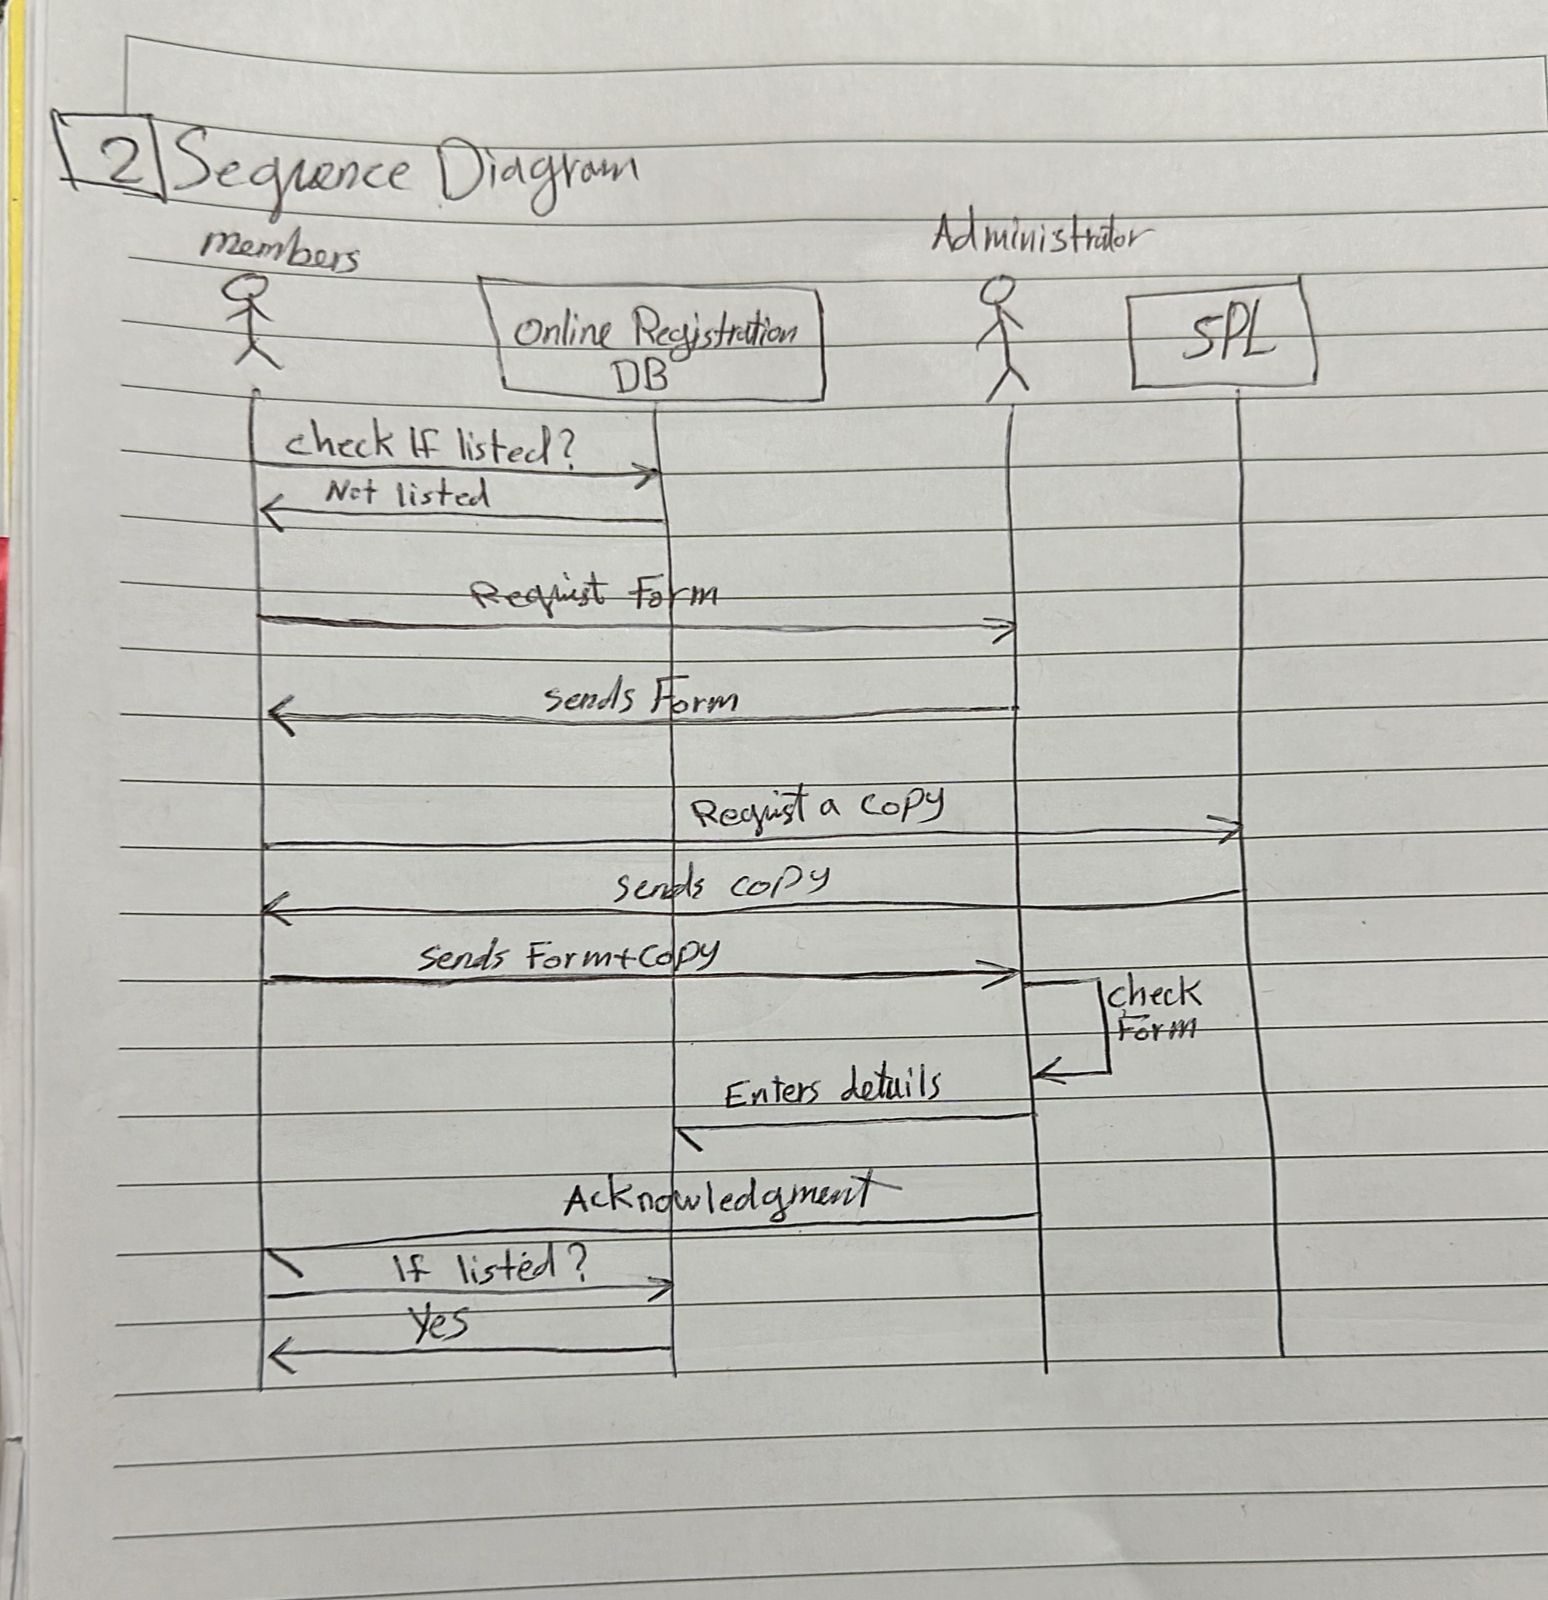 2 Sequence Diagram
members
Administrator
Online Registration
DB
SPL
check If listed?
Not listed
Requist Form
sends Form
Requist a copy
sends copy
sends Form+Copy
check
Form
Enters details
Acknowledgment
If listed?
Yes